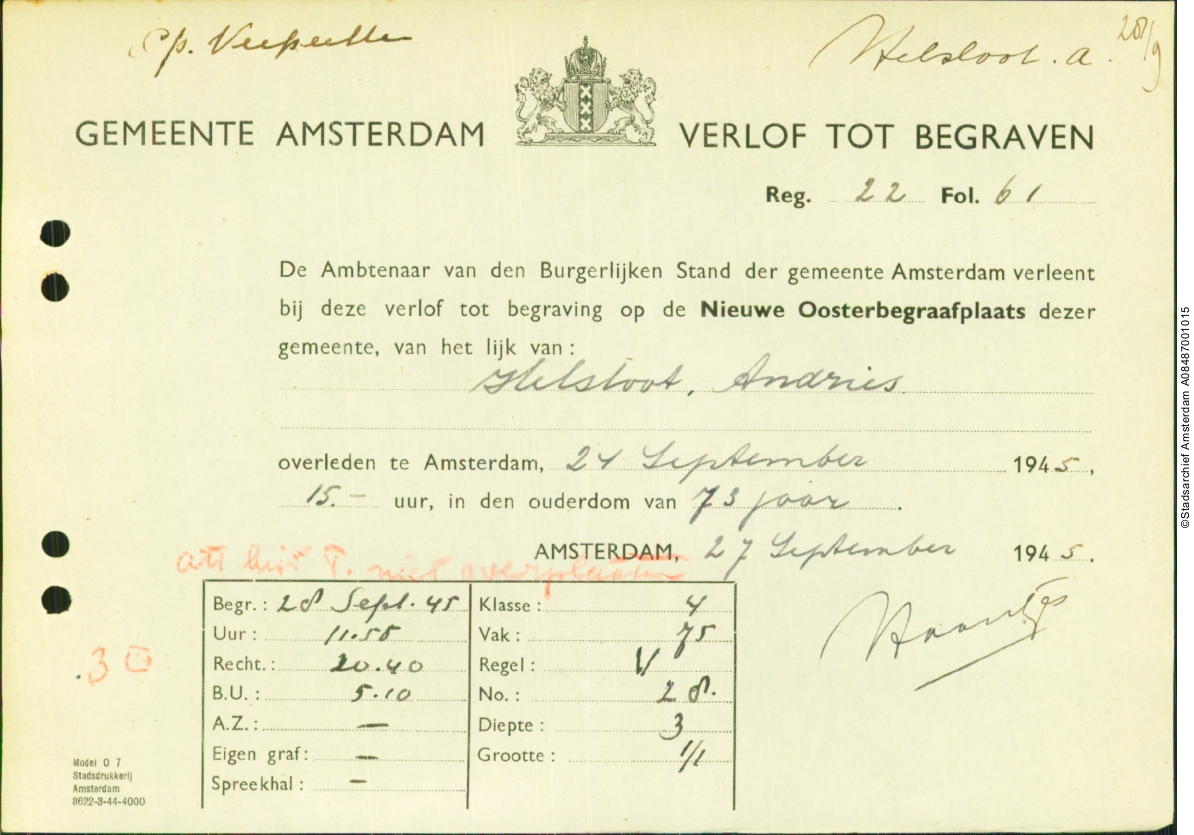 Helsloot. a. 28/9
GEMEENTE AMSTERDAM VERLOF TOT BEGRAVEN
Reg. 22 Fol. 61
De Ambtenaar van den Burgerlijken Stand der gemeente Amsterdam verleent
bij deze verlof tot begraving op de Nieuwe Oosterbegraafplaats dezer
gemeente, van het lijk van :
Helsloot, Andries.
overleden te Amsterdam, 24 September 1945,
15.- uur, in den ouderdom van 73 jaar.
AMSTERDAM, 27 September 1945.
niet overplaatsen
Begr.: 28 Sept. 45
Uur : 11.55
Recht.: 20.40
B.U. : 5.10
A.Z. : —
Eigen graf: —
Spreekhal : —
Klasse : 4
Vak : 75
Regel : V
No. : 28.
Diepte : 3
Grootte : 1/1
.30
Model O 7
Stadsdrukkerij
Amsterdam
8622-3-44-4000
©Stadsarchief Amsterdam A08487001015